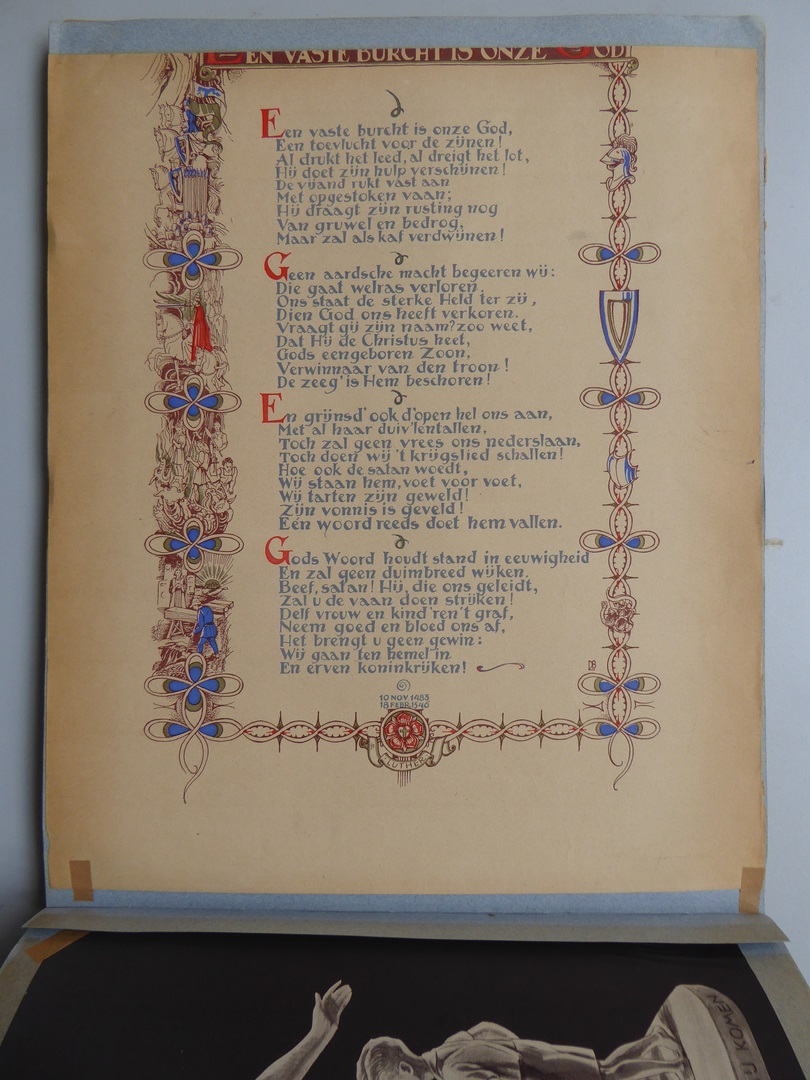 EEN VASTE BURCHT IS ONZE GOD!
Een vaste burcht is onze God,
Een toevlucht voor de zijnen!
Al drukt het leed, al dreigt het lot,
Hij doet zijn hulp verschijnen!
De vijand rukt vast aan
Met opgestoken vaan;
Hij draagt zijn rusting nog
Van gruwel en bedrog,
Maar zal als kaf verdwijnen!
Geen aardsche macht begeeren wij:
Die gaat welras verloren.
Ons staat de sterke Held ter zij,
Dien God ons heeft verkoren.
Vraagt gij zijn naam? zoo weet,
Dat Hij de Christus heet,
Gods eengeboren Zoon,
Verwinnaar van den troon!
De zeeg' is Hem beschoren!
En grijnsd' ook d'open hel ons aan,
Met al haar duiv'lentallen,
Toch zal geen vrees ons nederslaan,
Toch doen wij 't krijgslied schallen!
Hoe ook de satan woedt,
Wij staan hem, voet voor voet,
Wij tarten zijn geweld!
Zijn vonnis is geveld!
Eén woord reeds doet hem vallen.
Gods Woord houdt stand in eeuwigheid
En zal geen duimbreed wijken.
Beef, satan! Hij, die ons geleidt,
Zal u de vaan doen strijken!
Delf vrouw en kind'ren 't graf,
Neem goed en bloed ons af,
Het brengt u geen gewin:
Wij gaan ten hemel in
En erven koninkrijken!
DB
10 NOV 1483
18 FEBR. 1546
LUTHER
IJ KOMEN